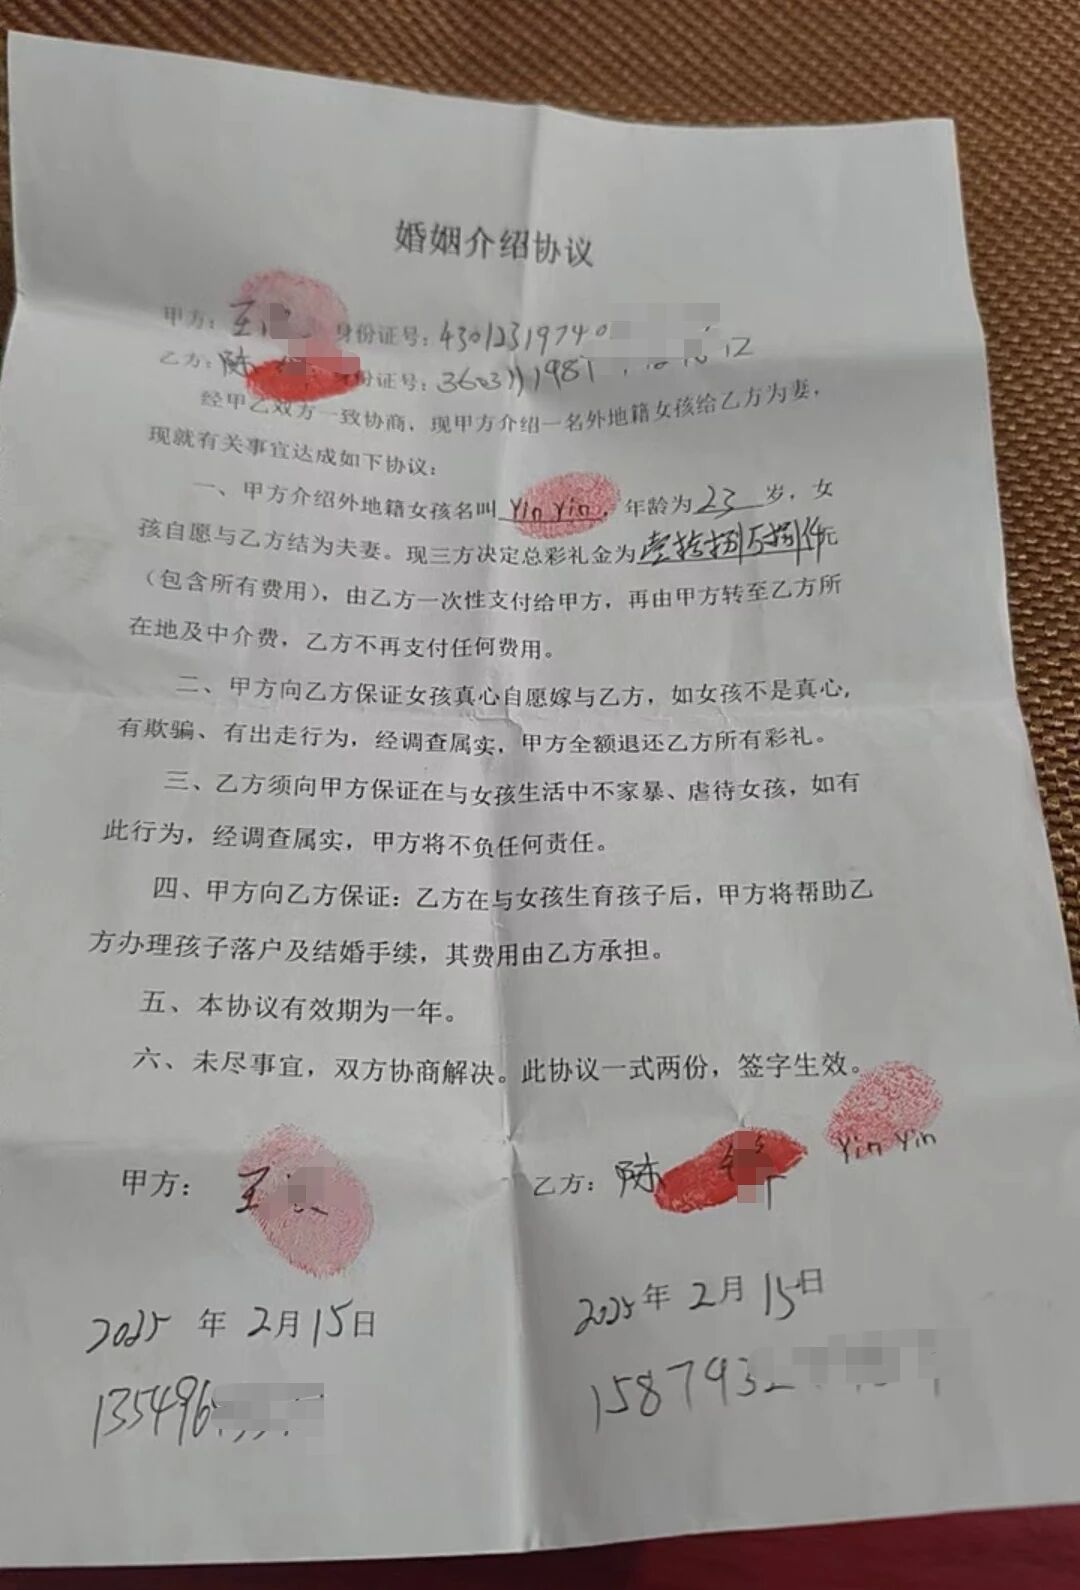 婚姻介绍协议
甲方：王 身份证号：4301231974
乙方：陈 身份证号：3603111981
经甲乙双方一致协商，现甲方介绍一名外地籍女孩给乙方为妻，
现就有关事宜达成如下协议：
一、甲方介绍外地籍女孩名叫Yin Yin，年龄为23岁，女
孩自愿与乙方结为夫妻。现三方决定总彩礼金为壹拾捌万捌仟元
（包含所有费用），由乙方一次性支付给甲方，再由甲方转至乙方所
在地及中介费，乙方不再支付任何费用。
二、甲方向乙方保证女孩真心自愿嫁与乙方，如女孩不是真心，
有欺骗、有出走行为，经调查属实，甲方全额退还乙方所有彩礼。
三、乙方须向甲方保证在与女孩生活中不家暴、虐待女孩，如有
此行为，经调查属实，甲方将不负任何责任。
四、甲方向乙方保证：乙方在与女孩生育孩子后，甲方将帮助乙
方办理孩子落户及结婚手续，其费用由乙方承担。
五、本协议有效期为一年。
六、未尽事宜，双方协商解决。此协议一式两份，签字生效。
甲方：王 乙方：陈 Yin Yin
2025年2月15日 2025年2月15日
135496 1587932